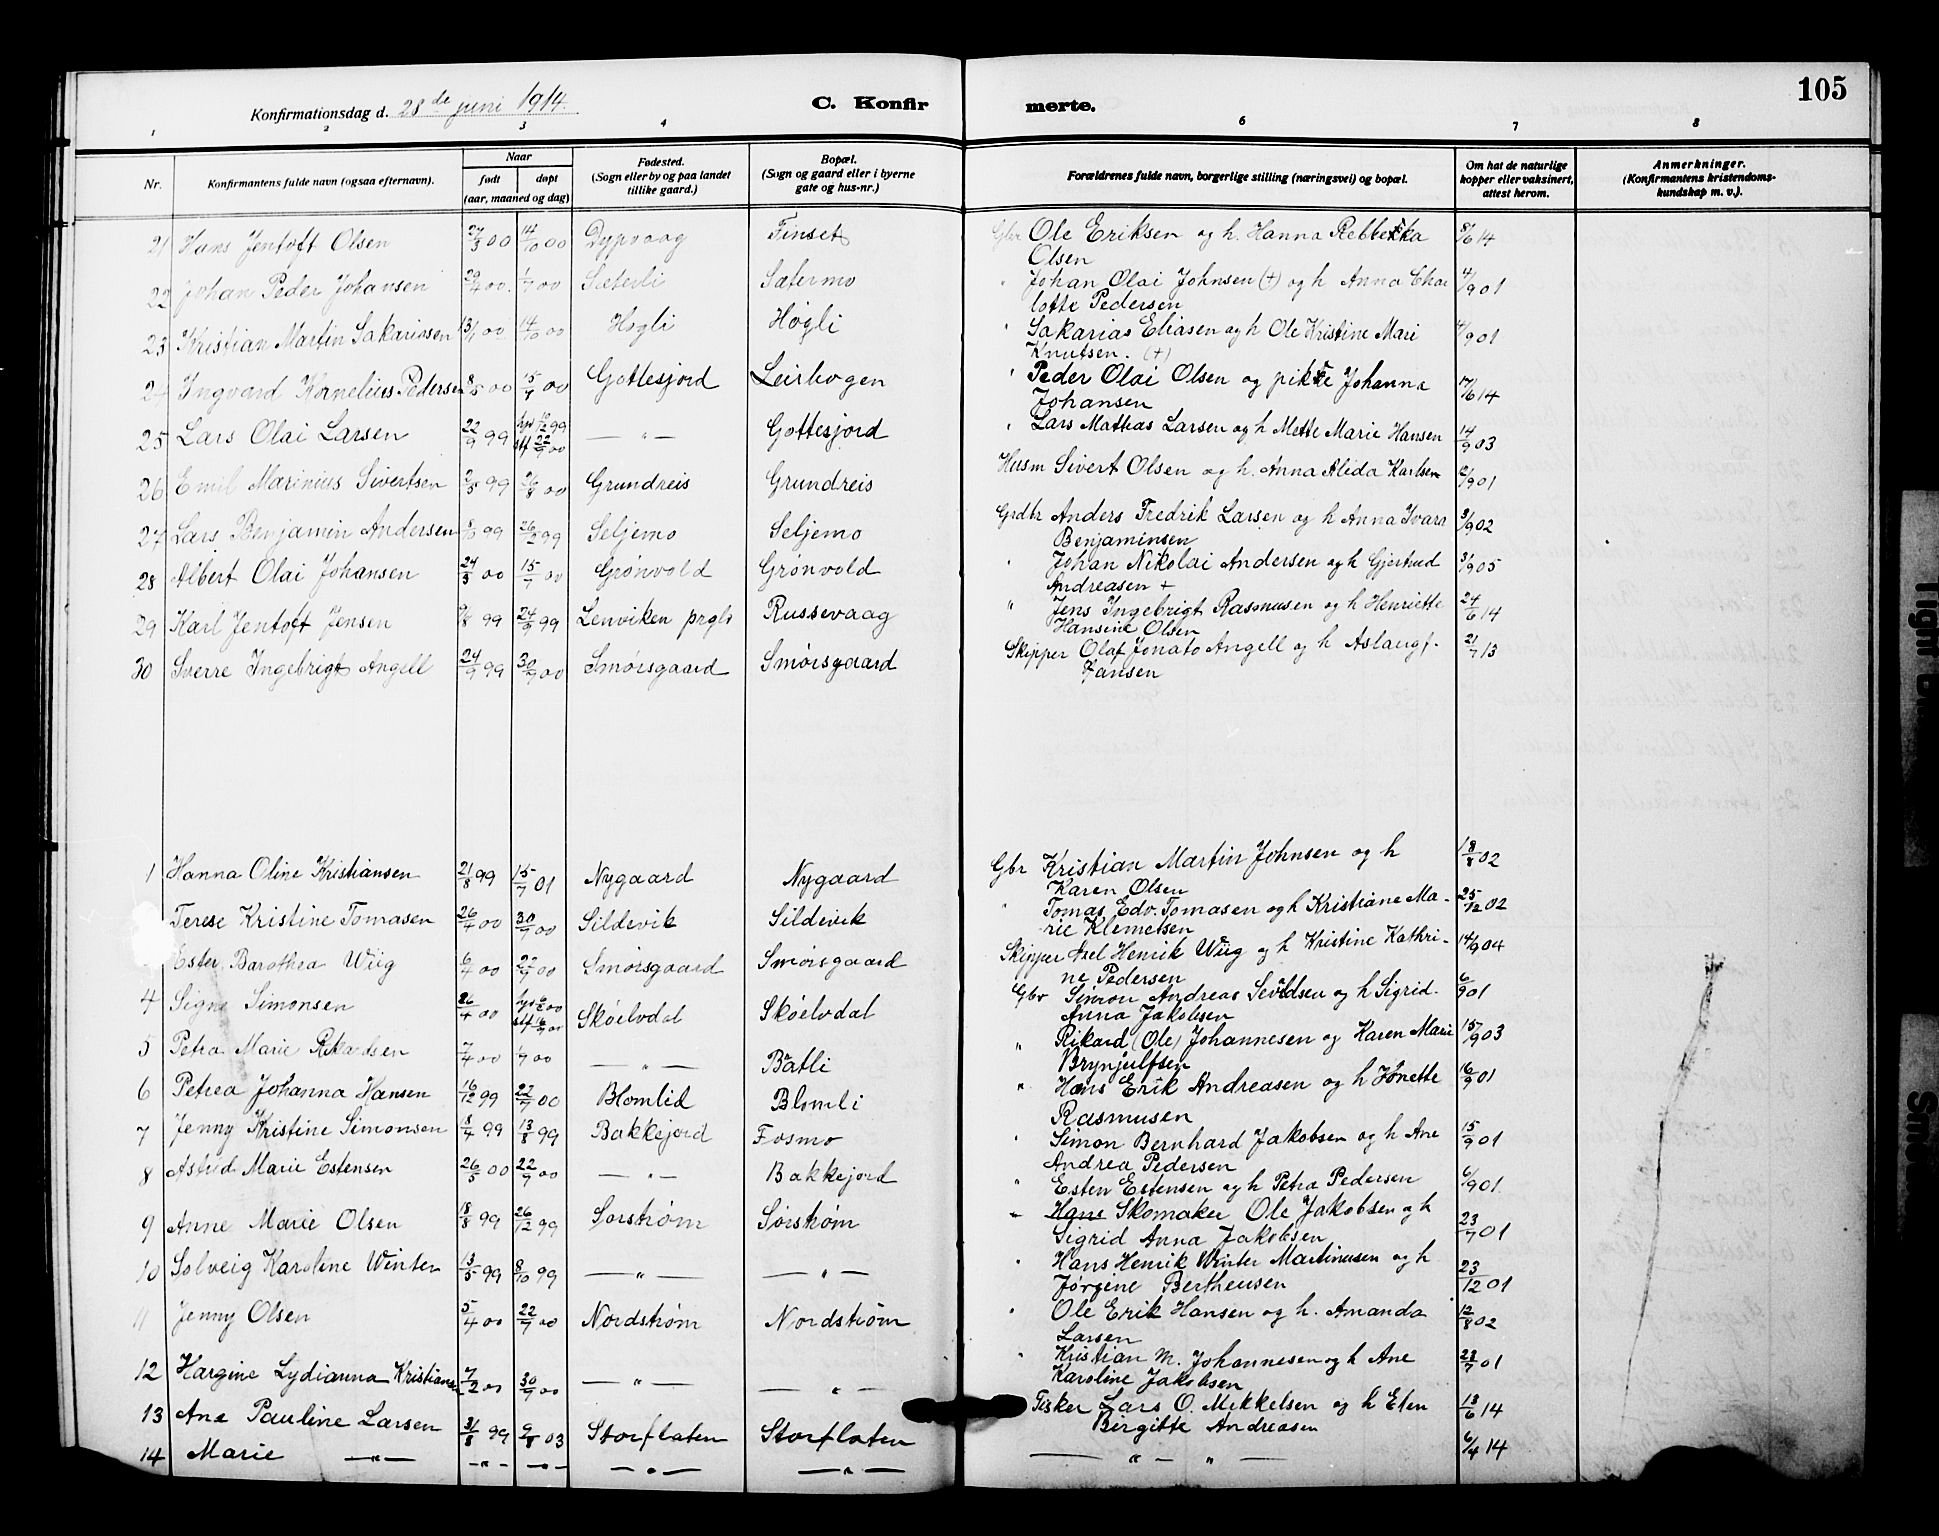 105
Konfirmationsdag d. 28de juni 1914.
C. Konfirmerte.
1 2 3 4 6 7 8
Nr.
Konfirmantens fulde navn (ogsaa efternavn).
Naar
født døpt
(aar, maaned og dag)
Fødested.
(Sogn eller by og paa landet
tillike gaard.)
Bopæl.
(Sogn og gaard eller i byerne
gate og hus-nr.)
Forældrenes fulde navn, borgerlige stilling (næringsvei) og bopæl.
Om hat de naturlige
kopper eller vaksinert,
attest herom.
Anmerkninger.
(Konfirmantens kristendoms-
kundskap m. v.).
21 Hans Jentoft Olsen 27/3 00 14/10 00 Dypvaag Finset Gbr Ole Eriksen og h. Hanna Rebbekka 8/6 14
Olsen
22 Johan Peder Johansen 29/4 00 1/7 00 Sæterli Sætermo " Johan Olai Johnsen (+) og h Anna Char 4/9 01
lotte Pedersen
23 Kristian Martin Sakariassen 13/1 00 14/10 00 Høgli Høgli " Sakarias Eliasen og h Ole Kristine Mari 4/9 01
Knutsen. (+)
24 Ingvard Kornelius Pedersen 8/5 00 15/7 00 Gottesjord Leirbogen " Peder Olai Olsen og pike Johanna 17/6 14
Johansen
25 Lars Olai Larsen 22/9 99 hp 10/12 99 — " — Gottesjord " Lars Mathias Larsen og h Mette Marie Hansen 14/9 03
stf 22/7 00
26 Emil Marinius Sivertsen 2/5 99 26/8 00 Grundreis Grundreis Husm Sivert Olsen og h. Anna Alida Karlsen 12/9 01
27 Lars Benjamin Andersen 8/10 99 26/12 99 Seljemo Seljemo Grdbr Anders Fredrik Larsen og h Anna Ivara 3/9 02
Benjaminsen
28 Albert Olai Johansen 24/3 00 15/7 00 Grønvold Grønvold " Johan Nikolai Andersen og h Gjertrud 3/9 05
Andreasen +
29 Karl Jentoft Jensen 9/8 99 24/9 99 Lenviken prgld Russevaag " Jens Ingebrigt Rasmusen og h Henriette 24/6 14
Hansine Olsen
30 Sverre Ingebrigt Angell 24/9 99 30/9 00 Smørsgaard Smørsgaard Skipper Olaf Jonato Angell og h Aslaug f. 21/7 13
Jansen
1 Hanna Oline Kristiansen 21/8 99 15/7 01 Nygaard Nygaard Gbr Kristian Martin Johnsen og h 18/8 02
Karen Olsen
Terese Kristine Tomasen 26/4 00 30/9 00 Sildevik Sildevik " Tomas Edv. Tomasen og h Kristiane Ma- 25/12 02
rie Klemetsen
Ester Barothea Wiig 6/4 00 22/7 00 Smørsgaard Smørsgaard Skipper Axel Henrik Wiig og h Kristine Kathri- 14/9 04
ne Pedersen
4 Signe Simonsen 26/4 00 hp 6/5 00 Skøelvdal Skøelvdal Gbr Simon Andreas Sevaldsen og h Sigrid 6/9 01
stf 16/9 00
Anna Jakobsen
5 Petra Marie Rikardsen 7/4 00 1/7 00 — " — Bøtli " Rikard (Ole) Johannesen og Karen Marie 15/9 03
Brynjulfsen
6 Petrea Johanna Hansen 16/12 99 22/7 00 Blomlid Blomli " Hans Erik Andreasen og h Jonette 16/9 01
Rasmusen
7 Jenny Kristine Simonsen 18/4 99 13/8 99 Bakkejord Fosmo " Simon Bernhard Jakobsen og h Ane 15/9 01
Andrea Pedersen
8 Astrid Marie Estensen 26/5 00 22/9 00 — " — Bakkejord " Esten Estensen og h Petra Pedersen 6/9 01.
9 Anne Marie Olsen 18/8 99 26/12 99 Sørstrøm Sørstrøm " Hans Skomaker Ole Jakobsen og h 23/7 01
Sigrid Anna Jakobsen
10 Solveig Karoline Winter 13/5 99 8/10 99 — " — — " — " Hans Henrik Winter Martinusen og h 23/12 01
Jørgine Bertheusen
11 Jenny Olsen 5/4 00 22/7 00 Nordstrøm Nordstrøm " Ole Erik Hansen og h. Amanda 12/8 02
Larsen
12 Hargine Lydianna Kristiansen 7/2 00 30/9 00 — " — — " — " Kristian M. Johannesen og h Ane 23/7 01
Karoline Jakobsen
13 Ane Pauline Larsen 31/8 99 9/8 03 Storflaten Storflaten Fisker Lars O. Mikkelsen og h Elen 13/6 14
Birgitte Andreasen
14 Marie — " — — " — — " — — " — — " — — " — " — 6/4 14